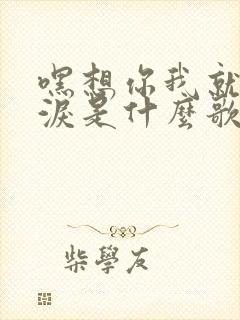 嘿想你我就
淚是什麼歌
柴學友